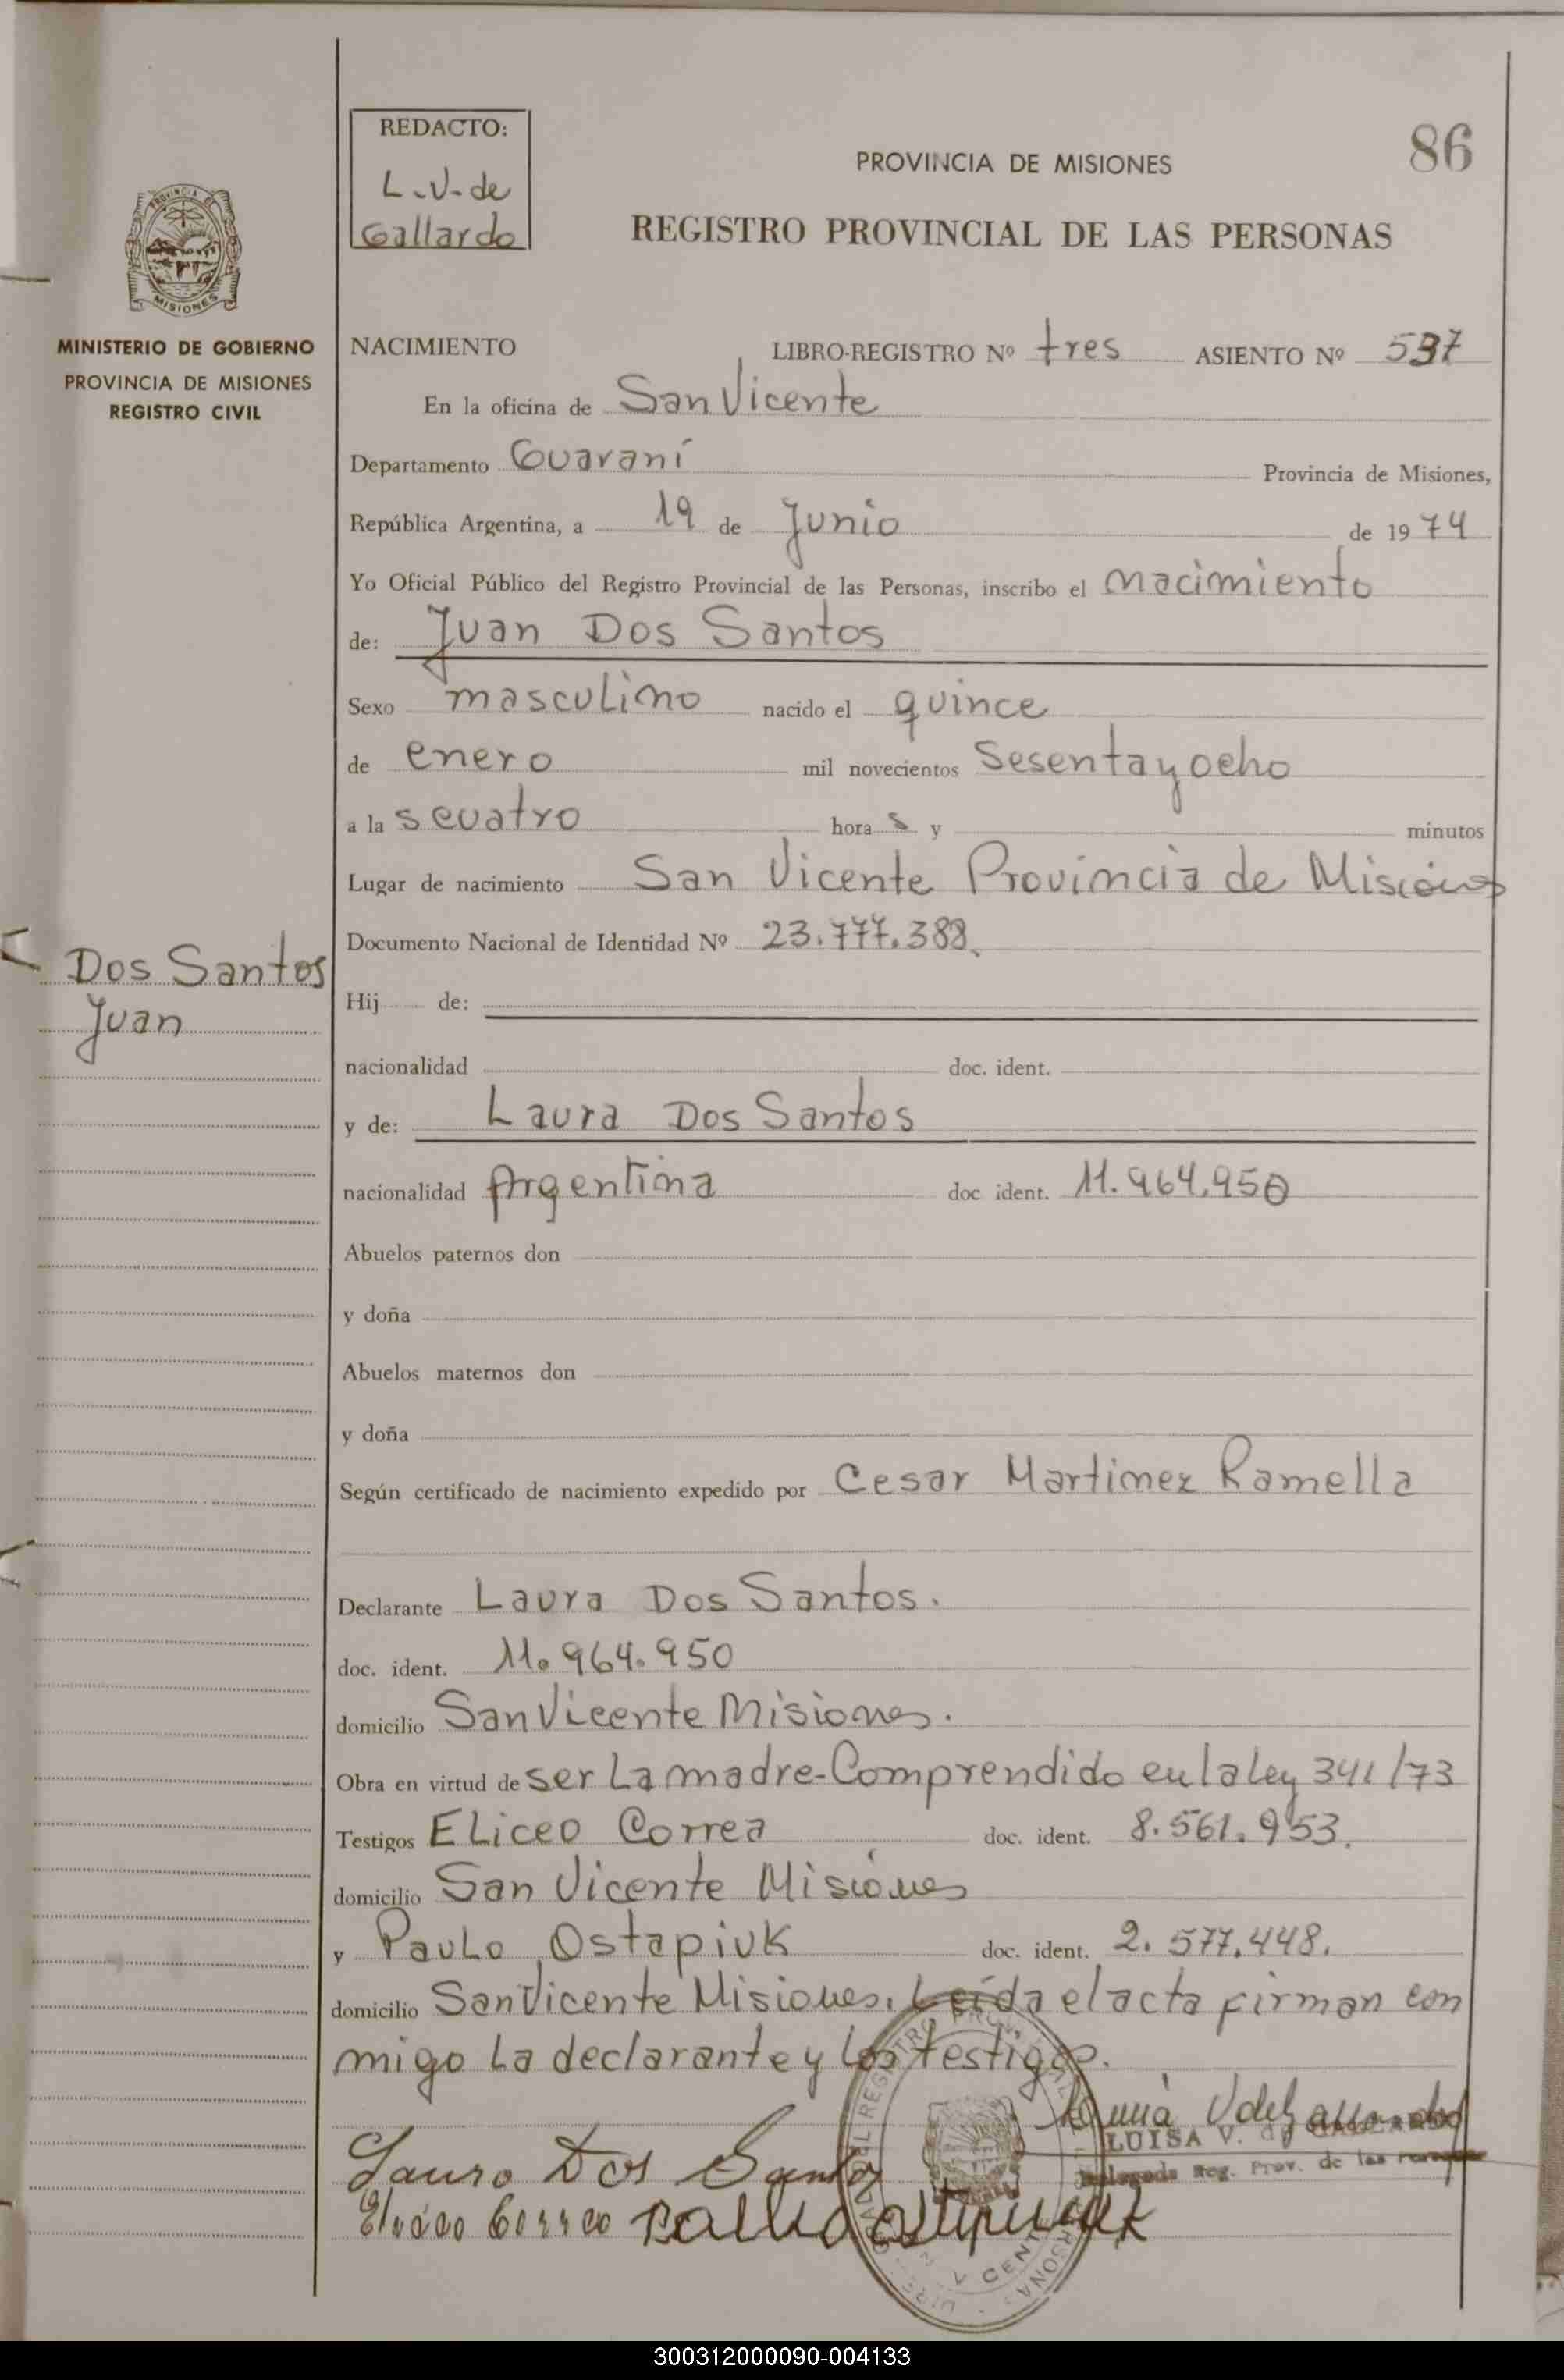 86
REDACTO:
L.V. de
Gallardo
PROVINCIA DE MISIONES
REGISTRO PROVINCIAL DE LAS PERSONAS
PROVINCIA DE
MISIONES
MINISTERIO DE GOBIERNO
PROVINCIA DE MISIONES
REGISTRO CIVIL
Dos Santos
Juan
NACIMIENTO LIBRO-REGISTRO Nº tres ASIENTO Nº 537
En la oficina de San Vicente
Departamento Guaraní Provincia de Misiones,
República Argentina, a 19 de Junio de 1974
Yo Oficial Público del Registro Provincial de las Personas, inscribo el nacimiento
de: Juan Dos Santos
Sexo masculino nacido el quince
de enero mil novecientos sesenta y ocho
a la s cuatro hora s y minutos
Lugar de nacimiento San Vicente Provincia de Misiones
Documento Nacional de Identidad Nº 23.777.388.
Hij de:
nacionalidad doc. ident.
y de: Laura Dos Santos
nacionalidad Argentina doc ident. 11.964.950
Abuelos paternos don
y doña
Abuelos maternos don
y doña
Según certificado de nacimiento expedido por Cesar Martinez Ramella
Declarante Laura Dos Santos.
doc. ident. 11.964.950
domicilio San Vicente Misiones.
Obra en virtud de ser La madre-Comprendido en la ley 341/73
Testigos ELiceo Correa doc. ident. 8.561.953.
domicilio San Vicente Misiones
y PauLo Ostapiuk doc. ident. 2.577.448.
domicilio San Vicente Misiones. Leída el acta firman con
migo La declarante y Los testigos.
LUISA V. de GALLARDO
Delegada Reg. Prov. de las Personas
Laura Dos Santos
300312000090-004133